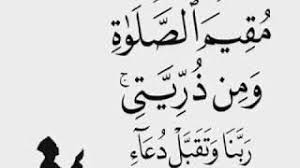 مُقِيمَ ٱلصَّلَوٰةِ
وَمِن ذُرِّيَّتِىۚ
رَبَّنَا وَتَقَبَّلْ دُعَآءِ